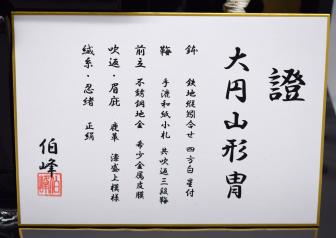 證
大円山形冑
鉢 鉄地縦矧合せ 四方白星付
鞠 手漉和紙小札 共吹返三段鞠
前立 不銹鋼地金 希少金属皮膜
吹返・眉庇 鹿革 漆盛上模様
縅糸・忍緒 正絹
伯峰